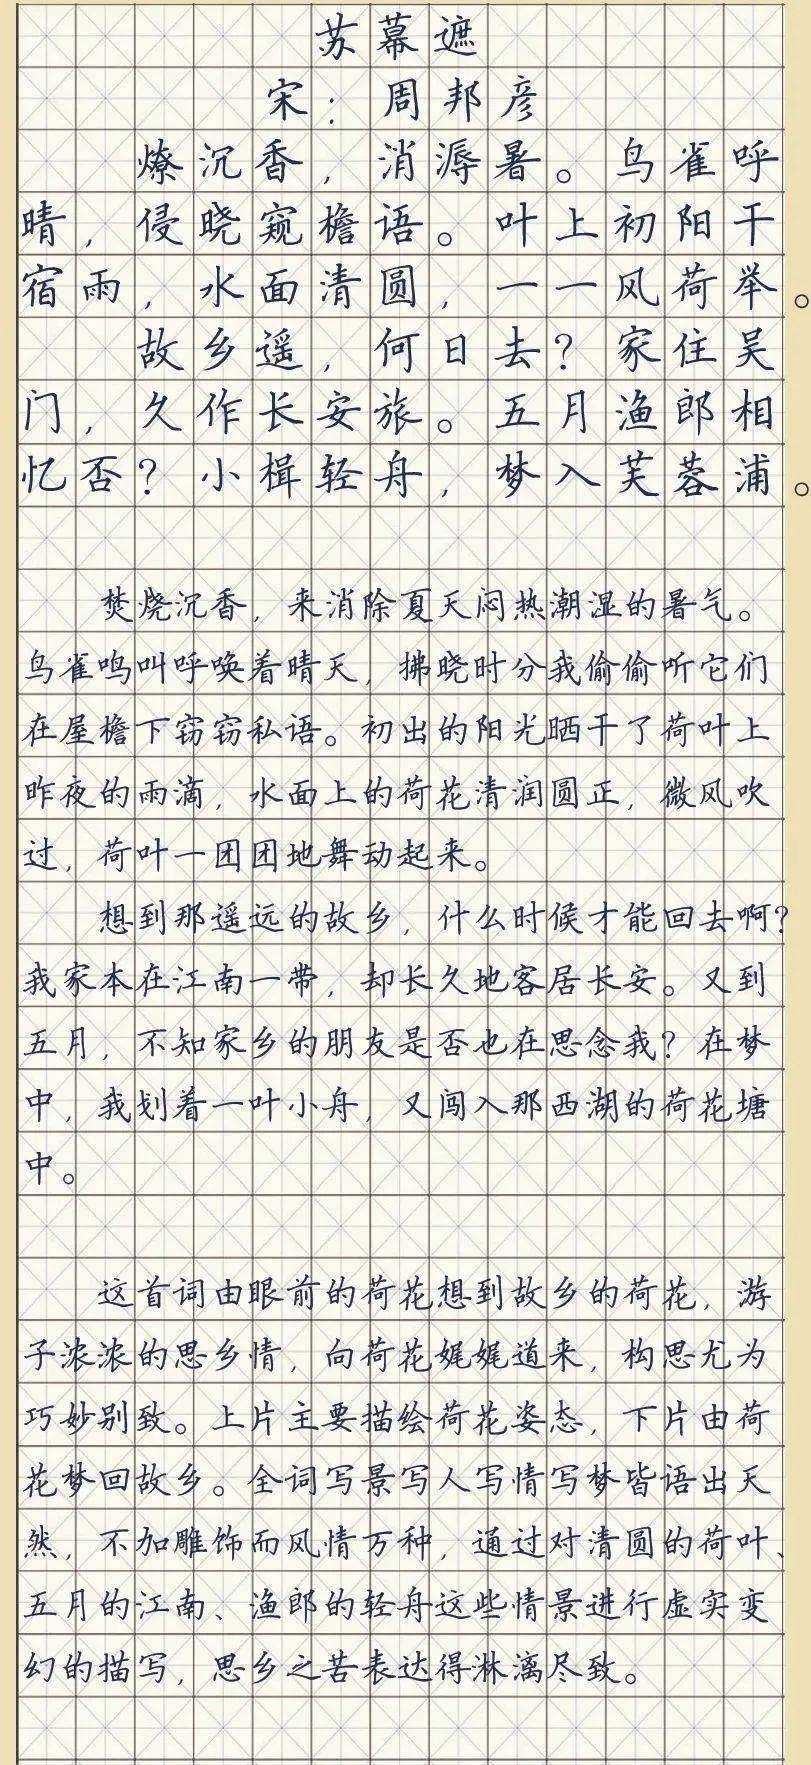 苏幕遮
宋：周邦彦
燎沉香，消溽暑。鸟雀呼
晴，侵晓窥檐语。叶上初阳干
宿雨，水面清圆，一一风荷举。
故乡遥，何日去？家住吴
门，久作长安旅。五月渔郎相
忆否？小楫轻舟，梦入芙蓉浦。
焚烧沉香，来消除夏天闷热潮湿的暑气。
鸟雀鸣叫呼唤着晴天，拂晓时分我偷偷听它们
在屋檐下窃窃私语。初出的阳光晒干了荷叶上
昨夜的雨滴，水面上的荷花清润圆正，微风吹
过，荷叶一团团地舞动起来。
想到那遥远的故乡，什么时候才能回去啊？
我家本在江南一带，却长久地客居长安。又到
五月，不知家乡的朋友是否也在思念我？在梦
中，我划着一叶小舟，又闯入那西湖的荷花塘
中。
这首词由眼前的荷花想到故乡的荷花，游
子浓浓的思乡情，向荷花娓娓道来，构思尤为
巧妙别致。上片主要描绘荷花姿态，下片由荷
花梦回故乡。全词写景写人写情写梦皆语出天
然，不加雕饰而风情万种，通过对清圆的荷叶、
五月的江南、渔郎的轻舟这些情景进行虚实变
幻的描写，思乡之苦表达得淋漓尽致。